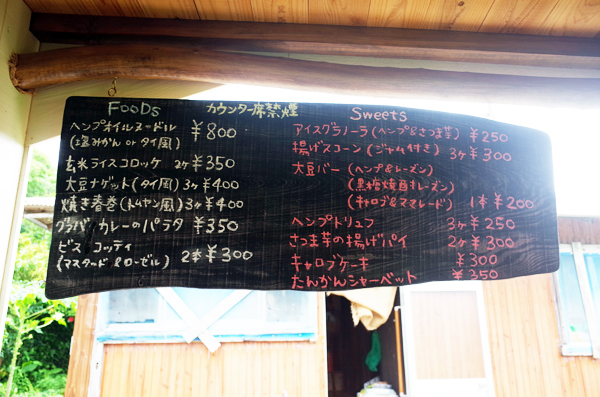 FOODS
カウンター席禁煙
ヘンプオイルヌードル ¥800
(塩みかん or タイ風)
玄米ライスコロッケ 2ヶ¥350
大豆ナゲット(タイ風) 3ヶ¥400
焼き春巻(トムヤン風) 3ヶ¥400
カレーのパラタ ¥350
ビスコッティ
(マスタード&ローゼル) 2本¥300
Sweets
アイスグラノーラ(ヘンプ&さつま芋) ¥250
揚げスコーン(ジャム付き) 3ヶ¥300
大豆バー(ヘンプ&レーズン)
(黒糖焼酎&レーズン)
(キャロブ&ママレード) 1本¥200
ヘンプトリュフ 3ヶ¥250
さつま芋の揚げパイ 2ヶ¥300
キャロブケーキ ¥300
たんかんシャーベット ¥350